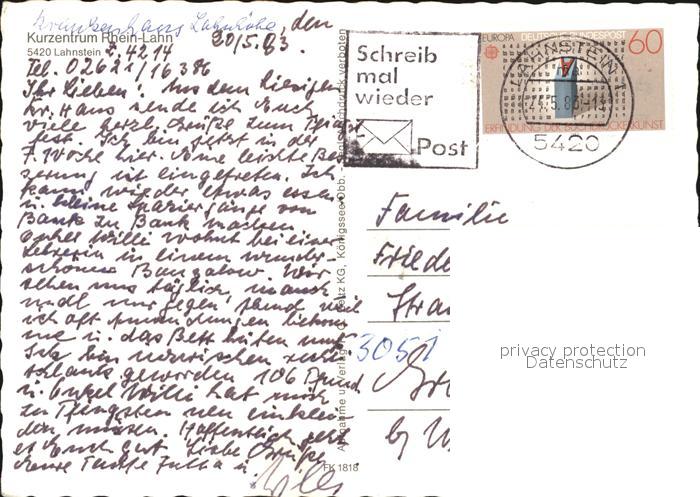 Krankenhaus Lahnhöhe, den
Kurzentrum Rhein-Lahn
20/5.83.
5420 Lahnstein Z. 4214
Tel. 02621/16386
Ihr Lieben! Aus dem hiesigen
Kr. Haus sende ich Euch
viele herzl. Grüße zum Pfingst
fest. Ich bin jetzt in der
7. Woche hier. Eine leichte Bes
serung ist eingetreten. Ich
kann wieder etwas essen
u. kleine Spaziergänge von
Bank zu Bank machen
Onkel Willi wohnt bei einer
Lehrerin in einem wunder-
schönen Bungalow. Wir
sehen uns täglich, manch
mal nur gegen Abend weil
ich oft
me u. das Bett hüten muß
Ich bin inzwischen
schlank geworden 106 Pfund
u. Onkel Willi hat mich
zu Pfingsten neu einklei
den müssen. Hoffentlich geht
es Euch gut. Liebe Grüße
Eure Tante Julla u.
Willi
Schreib
mal
wieder
Post
EUROPA DEUTSCHE BUNDESPOST 60
ERFINDUNG DER BUCHDRUCKERKUNST
LAHNSTEIN 1
5420
Königssee/Obb.
FK 1818
Familie
Friede
Stra
3051
privacy protection
Datenschutz